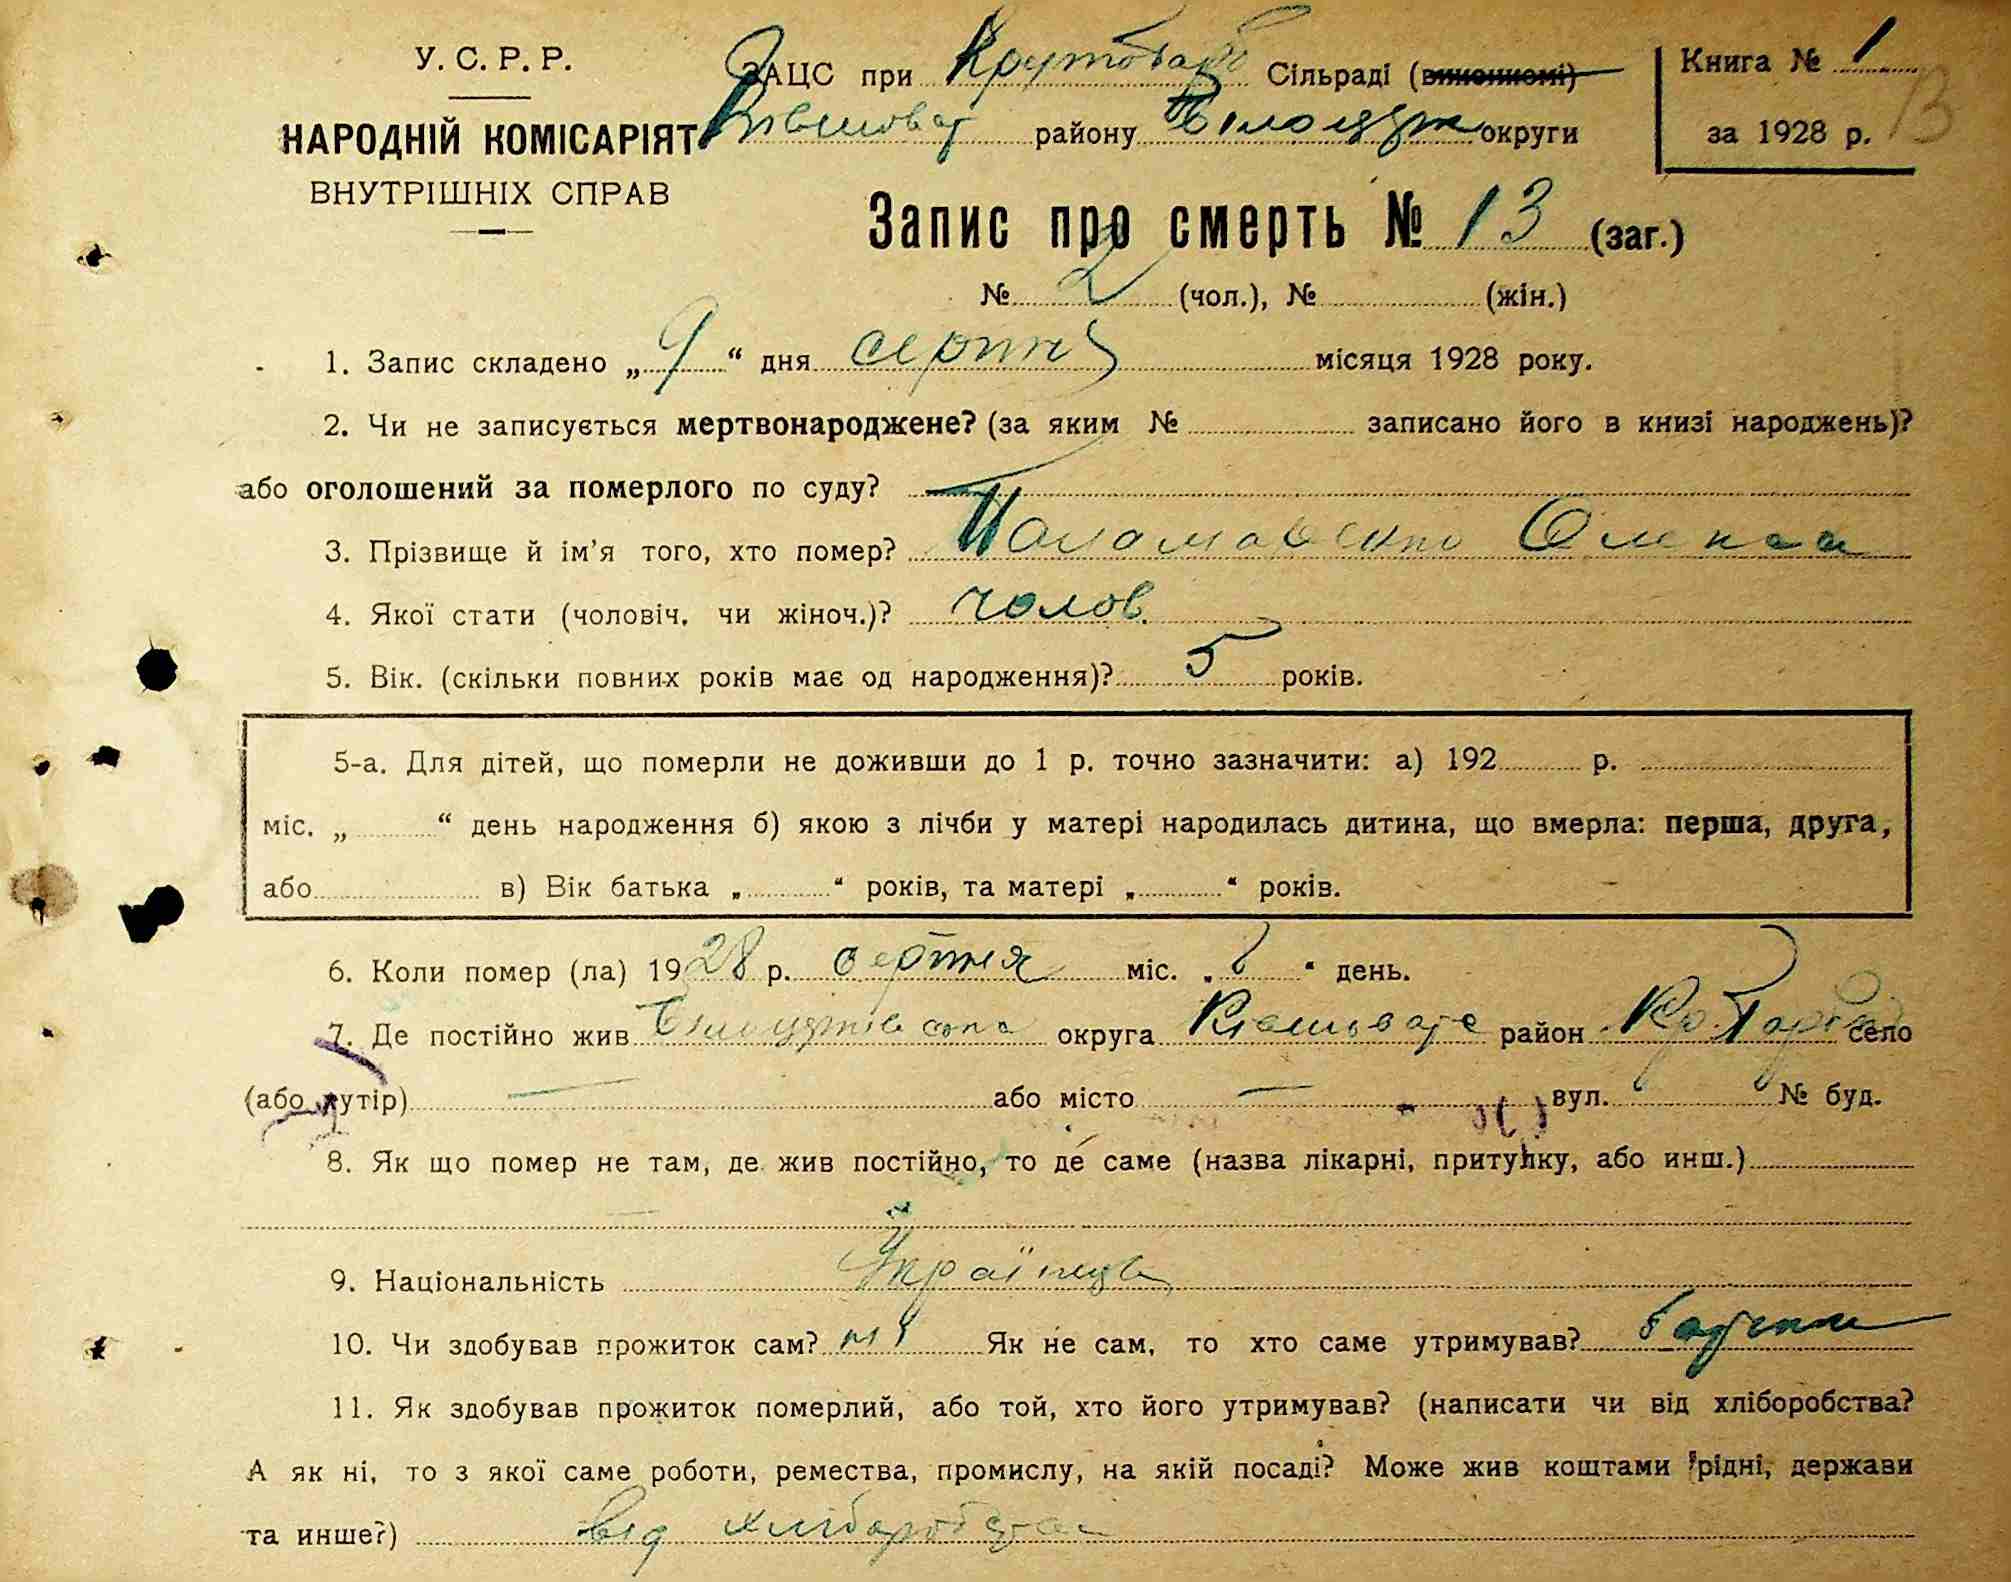 У. С. Р. Р.
НАРОДНІЙ КОМІСАРІЯТ
ВНУТРІШНІХ СПРАВ
ЗАЦС при Сільраді (виконкомі)
району округи
Книга № 1
за 1928 р.
13
Запис про смерть № 13 (заг.)
№ 2 (чол.), № (жін.)
1. Запис складено „ 9 “ дня серпня місяця 1928 року.
2. Чи не записується мертвонароджене? (за яким № записано його в книзі народжень)?
або оголошений за померлого по суду? —
3. Прізвище й ім’я того, хто помер?
4. Якої стати (чоловіч. чи жіноч.)? чолов.
5. Вік. (скільки повних років має од народження)? 5 років.
5-а. Для дітей, що померли не доживши до 1 р. точно зазначити: а) 192 р.
міс. „ “ день народження б) якою з лічби у матері народилась дитина, що вмерла: перша, друга,
або в) Вік батька „ “ років, та матері „ “ років.
6. Коли помер (ла) 1928 р. серпня міс. „ 8 “ день.
7. Де постійно жив округа район село
(або хутір) — або місто — вул. № буд.
8. Як що помер не там, де жив постійно, то де саме (назва лікарні, притулку, або инш.)
9. Національність Українець
10. Чи здобував прожиток сам? ні Як не сам, то хто саме утримував? батьки
11. Як здобував прожиток померлий, або той, хто його утримував? (написати чи від хліборобства?
А як ні, то з якої саме роботи, ремества, промислу, на якій посаді? Може жив коштами рідні, держави
та инше?) від хліборобства